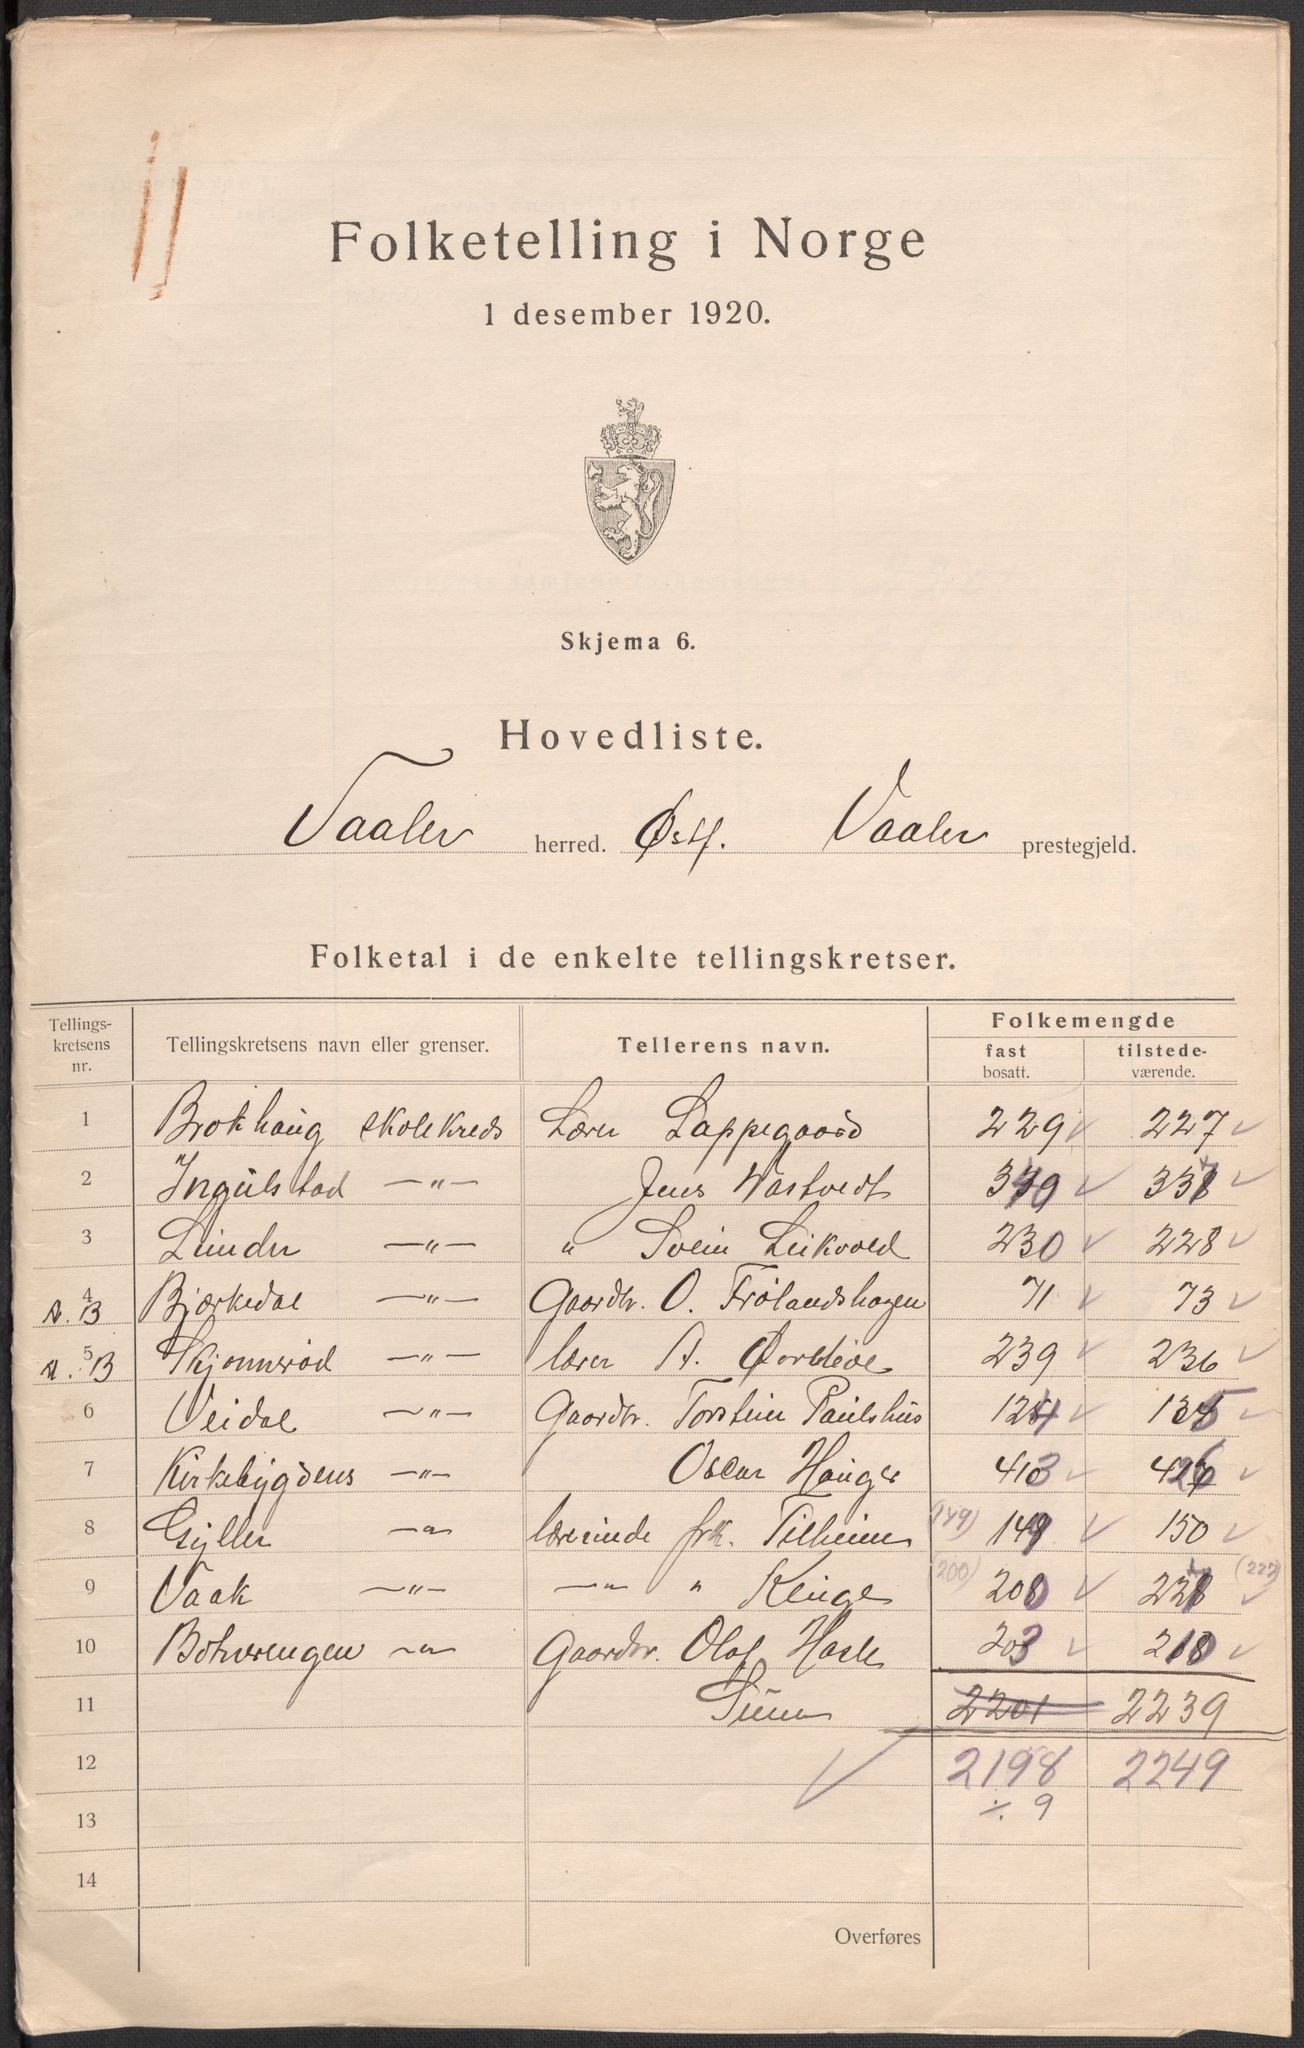 Folketelling i Norge
1 desember 1920.
Skjema 6.
Hovedliste.
Vaaler herred. Østf. Vaaler prestegjeld.
Folketal i de enkelte tellingskretser.
Tellings-kretsens nr. Tellingskretsens navn eller grenser. Tellerens navn. Folkemengde
fast bosatt. tilstede-værende.
1 Brokhaug skolekreds Lærer Lappegaard 229 227
2 Ingulstad —"— Jens Wastvedt
3 Lunder —"— " Svein Leikvold 230 228
4 Bjærkedal —"— Gaardbr. O. Frølandshagen 71 73
5 Skjønnerød —"— lærer A. 239 236
6 Veidal —"— Gaardbr. Torstein Paulshus 124 135
7 Kirkebygdens —"— Oscar Hauger 413 426
8 Gyller —"— lærerinde frk. Tilheim (149) 149 150
9 Vaak —"— —"— " Kenge (200) 200 (222)
10 Botnerengen —"— Gaardbr. Olaf Hasle 203 210
11 Sum 2201 2239
12 2198 2249
13 ÷ 9
14
Overføres